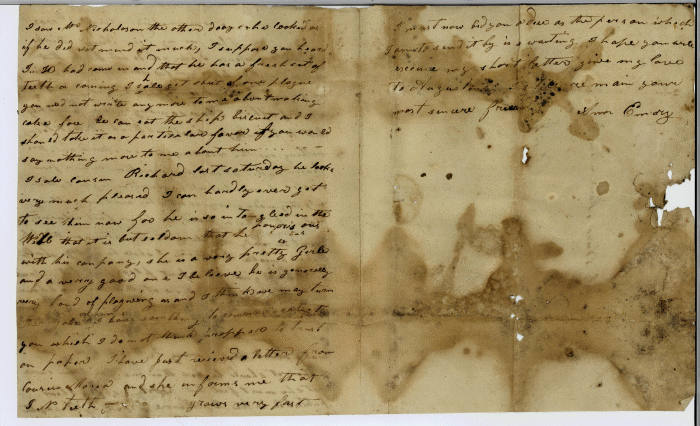 I saw Mr Nicholson the other day & he looked as
if he did not mind it much, I suppose you heard
I. N had come in and that he has a fresh set of
teeth a coming I a of one plague
you need not write any more to me about making
cake fore he can eat the ship biscuit and I
should take it as a particular favor if you would
say nothing more to me about him
I saw cousin Richard last saturday he looks
very much pleased I can hardly ever get
to see him now for he is so in in the
that it is but seldom that he us
with his company, she is a very pretty Girl
and a very good one I beleeve he is generally
very fond of plagueing us and I think we may turn
I have something to
you which I do not think propper to trust
on paper I have just received a letter from
cousin and she informs me that
I N teeth grows very fast
I must now bid you adieu as the person which
I am to send it by is a waiting I hope you will
excuse my short letter give my love
to remain your
most sincere friend Ann Emory